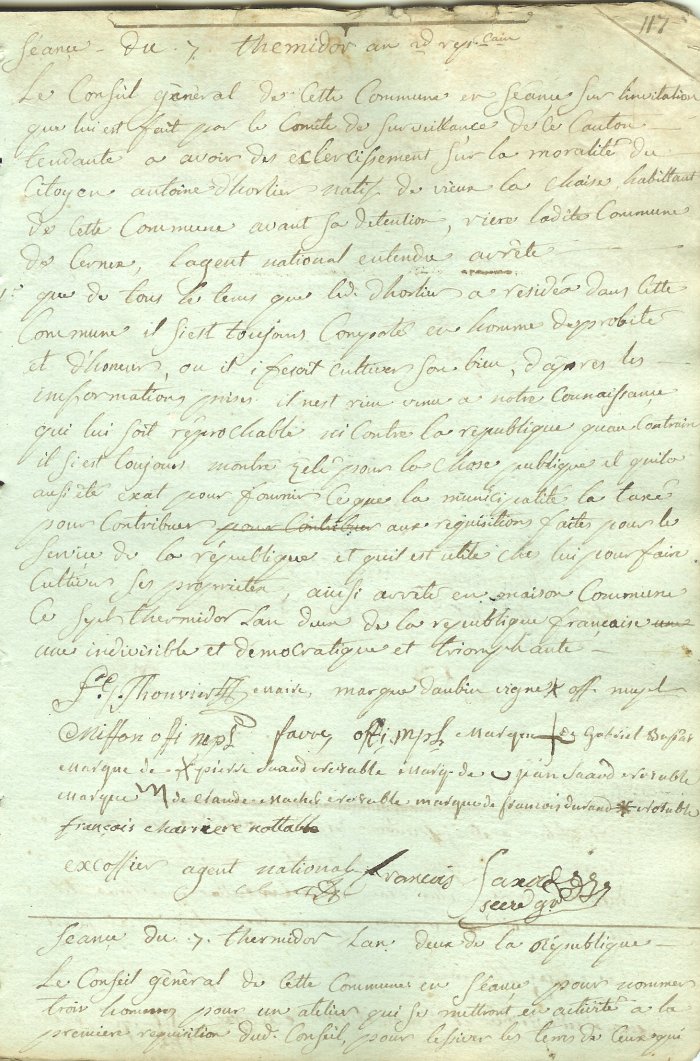 117
Séance du 7 themidor an 2d repcain
Le Conseil général de Cette Commune en Séance sur linvitation
que lui est fait par le Comité de Surveillance de le Canton
tendante a avoir des eclercissement sur la moralité du
Citoyen antoine dhorlier natif de vieux la chaise habittant
de Cette Commune avant sa detention, riere ladite Commune
de Cernex, lagent national entendu arrête
que de tous le tems que led. dhorlier a residéa dans Cette
Commune il s'iest toujours Comporté en homme de probité
et d'honeur, ou il i fesoit Cultiver son bien, d'après les
informations prises il nest rien venu a notre Connaissance
qui lui soit réprochable ni Contre la republique quau Contrain
il siest toujours montré zélé pour la Chose publique et quila
ausi été exat pour fournir Ce que la municipalité la taxé
pour Contribuer pour Contribuer aux requisitions faites pour le
Service de la république et quil est utile ches lui pour fair
Cultiver Ses proprietés, ainsi arrêté en maison Commune
Ce Sept thermidor Lan deux de la republique française une
une indivisible et democratique et triomphante
Thouvier maire, marque daubin vigne x off. mupl
Miffon offi mpl favre offi mpl marque + de Gabriel
marque de x pierre Saxod notable marq. de jean Saxod notable
marque m de Claude notable marque de francois durand x notable
françois charriere nottable
excoffier agent national françois Saxod
secre gr
Séance du 7 thermidor Lan deux de la République
Le Conseil général de Cette Commune en Séance pour nommer
trois hommes pour un atelier qui se mettront en activité a la
premiere requisition dud. Conseil, pour lesiver les terres de Ceux qui